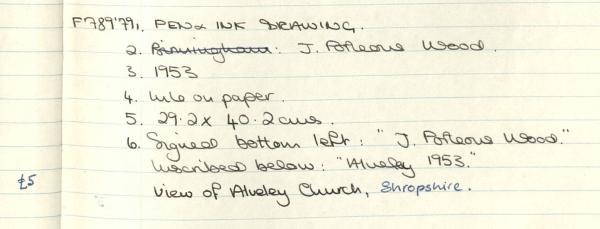 F789'79, 1. PEN & INK DRAWING.
2. Birmingham: J. Porteous Wood.
3. 1953
4. Ink on paper.
5. 29.2 x 40.2 cms.
6. Signed bottom left: "J. Porteous Wood."
Inscribed below: "Alveley 1953."
£5 View of Alveley Church, Shropshire.